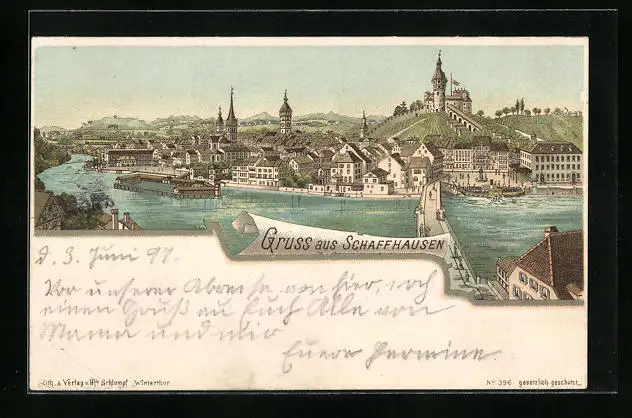 Gruss aus Schaffhausen
d. 3. Juni 97.
Vor unserer Abreise von hier, noch
einen Gruß an Euch Alle von
Mama und mir
Eurer Hermine.
Lith. & Verlag v. Hch Schlumpf, Winterthur.
No 396 gesetzlich geschützt.